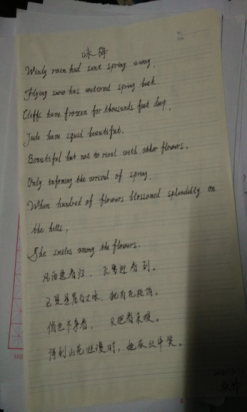 咏梅
Windy rain had sent spring away.
Flying snow has welcomed spring back.
Cliffs have frozen for thousands feet deep,
Jade have spied beautiful.
Beautiful but not to rival with other flowers.
Only informing the arrival of spring.
When hundred of flowers blossomed splendidly on
the hills,
She smiles among the flowers.
风雨送春归, 飞雪迎春到。
已是悬崖百丈冰, 犹有花枝俏。
俏也不争春, 只把春来报。
待到山花烂漫时, 她在丛中笑。